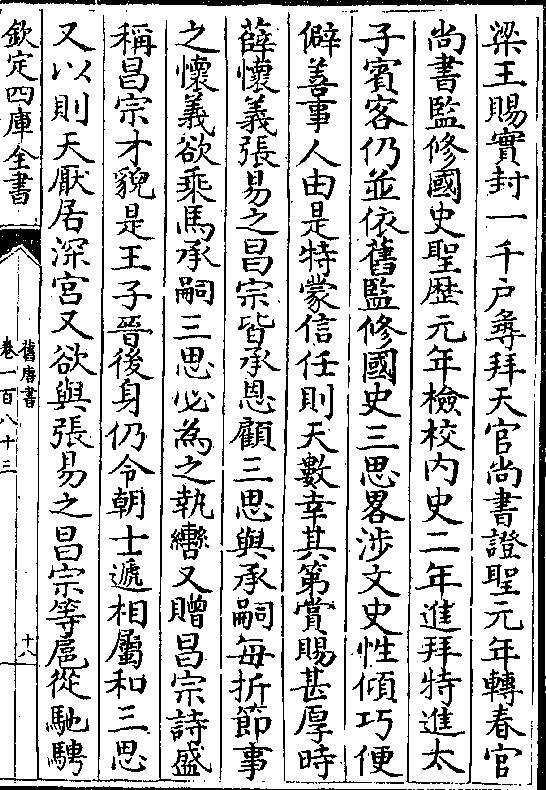 梁王賜實封一千户尋拜天官尚書證聖元年轉春官
尚書監修國史聖歴元年檢校内史二年進拜特進太
子賓客仍並依舊監修國史三思畧涉文史性傾巧便
僻善事人由是特蒙信任則天數幸其第賞賜甚厚時
薛懷義張易之昌宗皆承恩顧三思與承嗣每折節事
之懷義欲乘馬承嗣三思必為之執轡又贈昌宗詩盛
稱昌宗才貌是王子晉後身仍令朝士遞相屬和三思
又以則天厭居深宫又欲與張易之昌宗等扈從馳騁
欽定四庫全書
舊唐書
卷一百八十三
十八